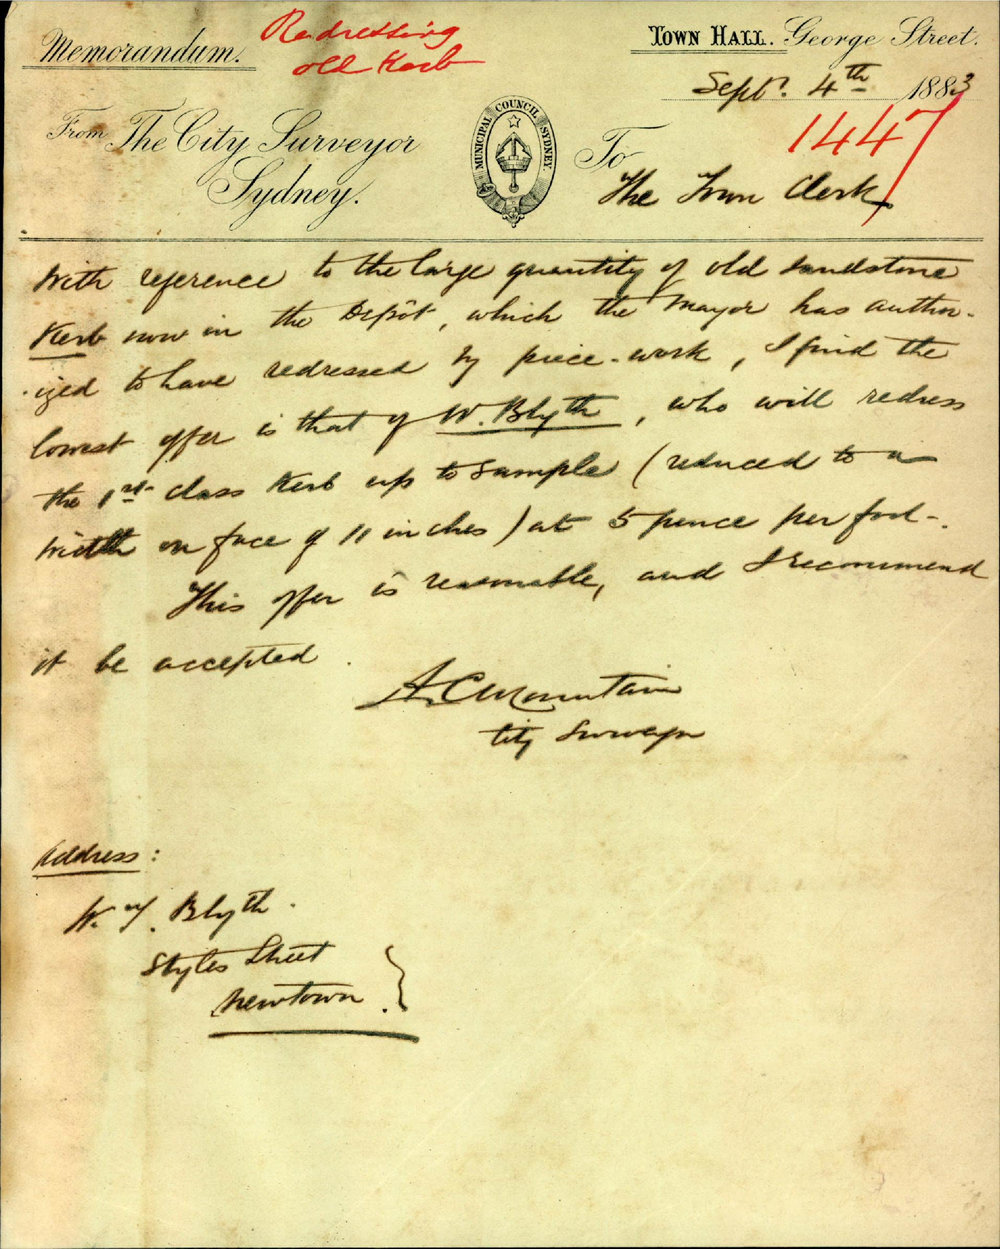 Memorandum.
Redressing
old Kerb
Town Hall. George Street.
Septr. 4th 1883
1447
From The City Surveyor
Sydney.
MUNICIPAL COUNCIL SYDNEY.
To
The Town Clerk
With reference to the large quantity of old sandstone
Kerb now in the Depôt, which the Mayor has author-
-ized to have redressed by piece-work, I find the
lowest offer is that of W. Blyth, who will redress
the 1st class Kerb up to sample (reduced to a
width on face of 11 inches) at 5 pence per foot.
This offer is reasonable, and I recommend
it be accepted.
A.C. Mountain
City Surveyor
Address:
Wm. Blyth.
Styles Street
Newtown.